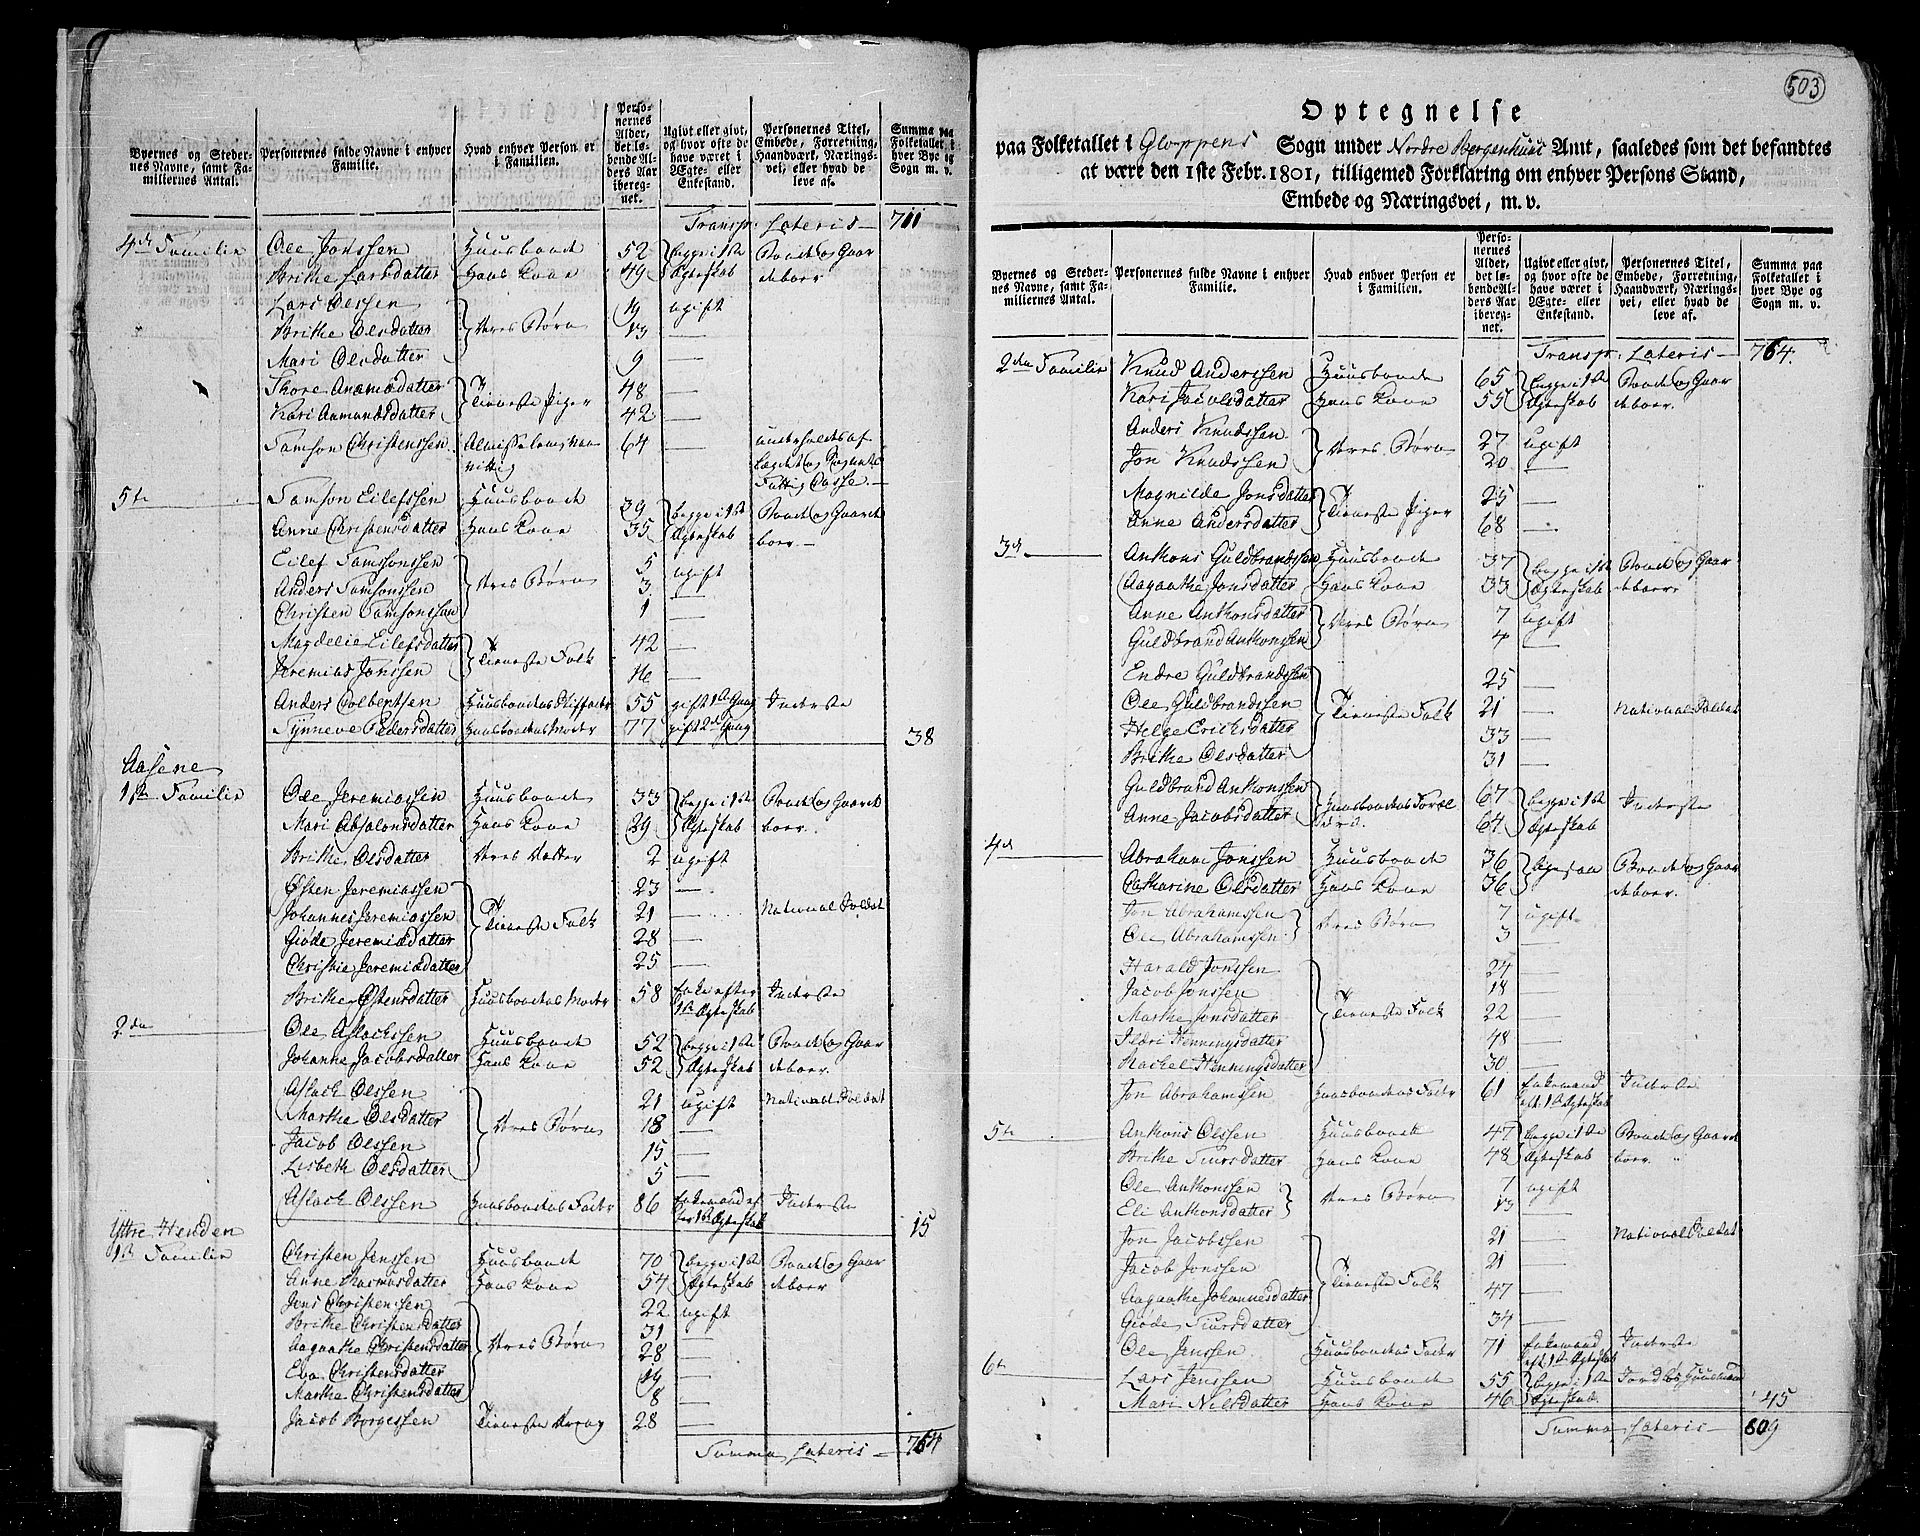 Byernes og Stedernes Navne, samt Familiernes Antal.
Personernes fulde Navne i enhver Familie.
Hvad enhver Person er i Familien.
Personernes Alder, det løbende Alders Aar iberegnet.
Ugivt eller givt, og hvor ofte de have været i Ægte- eller Enkestand.
Personernes Titel, Embede, Forretning, Haandværk, Næringsvei, eller hvad de leve af.
Summa paa Folketallet i hver Bye og Sogn m. v.
Transp: Lateris — 711
4de Familie Ole Jonssen Huusbonde 52 begge i 1ste Bonde og Gaar
Brithe Larsdatter Hans Kone 49 Ægteskab deboer
Lars Olssen 19 ugift
Brithe Olsdatter deres Børn 13 —
Mari Olsdatter 9 —
Thore Anamsdatter 48 —
Kari Aamundsdatter Tieneste Piger 42 —
Samson Christenssen 64 —
Fattig Casse —
5te Samson Eilefssen Huusbonde 39 begge i 1ste Bonde og Gaard
Anne Christensdatter Hans Kone 35 Ægteskab boer —
Eilef Samsonssen 5 ugift
Anders Samsonssen deres Børn 3 —
Christen Samsonssen 1 —
Magdelie Eilefsdatter 42 —
Jeremias Jonssen Tieneste Folk 16 —
Anders Colbentsen Huusbondens Stiffader 55 gift 1de Gang Inderste
Synneve Pedersdatter Huusbondens Moder 77 gift 2de Gang 38
Aasene
1ste Familie Ole Jeremiassen Huusbonde 33 begge i 1ste Bonde og Gaard
Mari Absalonsdatter Hans Kone 29 Ægteskab boer
Brithe Olsdatter deres Datter 2 ugift
Østen Jeremiassen 23 —
Johannes Jeremiassen Tieneste Folk 21 — National Soldat
Giøde Jeremiædatter 28 —
Christie Jeremiædatter 25 —
Brithe Østensdatter Huusbondens Moder 58 Enke efter 1ste Ægteskab Inderste
2den Ole Aslachssen Huusbonde 52 begge i 1ste Bonde og Gaar
Johanne Jacobsdatter Hans Kone 52 Ægteskab deboer
Aslach Olssen 21 ugift National Soldat
Marthe Olsdatter deres Børn 18 —
Jacob Olssen 15 —
Lisbeth Olsdatter 5 —
Aslach Olssen Huusbondens Fader 86 Enkemand efter 1ste Ægteskab Inderste 15
Yttre Henden
1ste Familie Christen Jenssen Huusbonde 70 begge i 1ste Bonde og Gaar
Anne Rasmusdatter Hans Kone 54 Ægteskab deboer
Jens Christenssen 22 ugift
Brithe Christensdatter 31 —
Aagaathe Christensdatter deres Børn 28 —
Eva Christensdatter 19 —
Marthe Christensdatter 8 —
Jacob Borgessen Tieneste Dreng 28
Summa Lateris — 764
503
Optegnelse
paa Folketallet i Gloppens Sogn under Nordre Bergenhuus Amt, saaledes som det befandtes
at være den 1ste Febr. 1801, tilligemed Forklaring om enhver Persons Stand,
Embede og Næringsvei, m. v.
Byernes og Stedernes Navne, samt Familiernes Antal.
Personernes fulde Navne i enhver Familie.
Hvad enhver Person er i Familien.
Personernes Alder, det løbende Alders Aar iberegnet.
Ugivt eller givt, og hvor ofte de have været i Ægte- eller Enkestand.
Personernes Titel, Embede, Forretning, Haandværk, Næringsvei, eller hvad de leve af.
Summa paa Folketallet i hver Bye og Sogn m. v.
Transp: Lateris — 764
2den Familie Knud Anderssen Huusbonde 65 begge i 1ste Bonde og Gaar
Kari Jacobsdatter Hans Kone 55 Ægteskab deboer
Anders Knudssen deres Børn 27 ugift
Jon Knudssen 20 —
Magnilde Jonsdatter 25 —
Anne Andersdatter Tieneste Piger 68 —
3de Ankons Guldbrandssen Huusbonde 37 begge i 1ste Bonde og Gaar
Aagaathe Jonsdatter Hans Kone 33 Ægteskab deboer
Anne Ankonsdatter deres Børn 7 ugift
Guldbrand Ankonssen 4 —
Endre Guldbrandssen 25 —
Ole Guldbrandssen Tieneste Folk 21 — National Soldat
Helge Erichsdatter 33 —
Brithe Olsdatter 31 —
Guldbrand Ankonssen 67 begge i 1ste Inderste
Anne Jacobsdatter Huusbondens Forældre 64 Ægteskab
4de Abraham Jonssen Huusbonde 36 Bonde og Gaar
Catharine Olsdatter Hans Kone 36 deboer
Jon Abrahamssen deres Børn 7 ugift
Ole Abrahamssen 3 —
Harald Jonssen 24 —
Jacob Jonssen 18 —
Marthe Jonsdatter Tieneste Folk 22 —
Sidri Henningsdatter 48 —
Rachel Henningsdatter 30 —
Jon Abrahamssen Huusbondens Fader 61 Enkemand eft. 1ste Ægteskab Inderste
5te Ankons Olssen Huusbonde 47 begge i 1ste Bonde og Gaard
Brithe Siursdatter Hans Kone 48 Ægteskab boer
Ole Ankonssen deres Børn 7 ugift
Eli Ankonsdatter 13 —
Jon Jacobssen 21 — National Soldat
Jacob Jonssen Tieneste Folk 21 —
Aagaathe Johannesdatter 47 —
Giøde Siursdatter 34 —
Ole Jenssen Huusbondens Fader 71 Enkemand eft. 1ste Ægteskab Inderste
6te Lars Jenssen Huusbonde 55 begge i 1ste Jord og Huusmand
Mari Nilsdatter Hans Kone 46 Ægteskab 45
Summa Lateris — 809